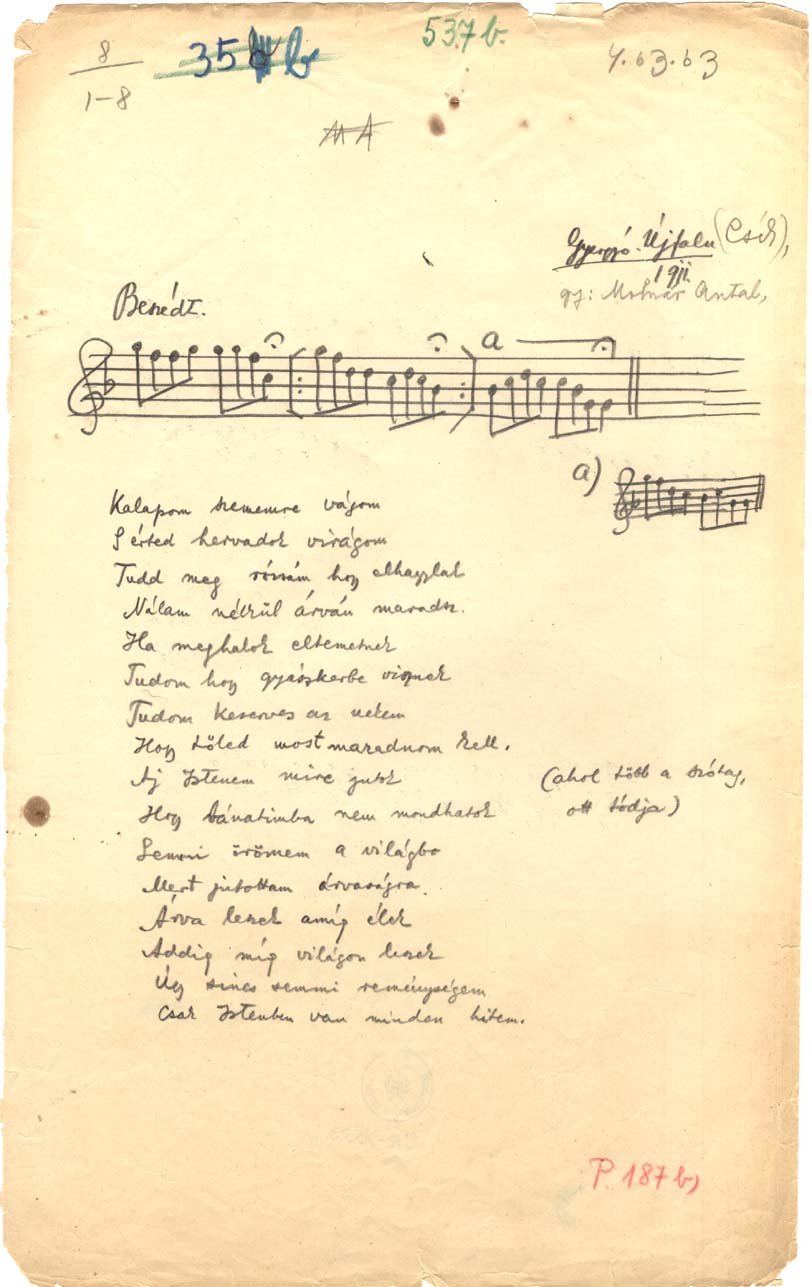 8
1-8
356 b
537 b.
4.63.63
MA
Gyergyó-Újfalu (Csík),
1911.
gy: Molnár Antal,
Beszédt.
a
a)
Kalapom szememre vágom
S érted hervadok virágom
Tudd meg rózsám hogy elhagylak
Nálam nélkül árván maradsz.
Ha meghalok eltemetnek
Tudom hogy gyászkertbe visznek
Tudom keserves az nekem
Hogy tőled most maradnom kell.
Áj Istenem mire jutok
Hogy bánatimba nem mondhatok
Semmi örömem a világba
Mert jutottam árvaságra.
(ahol több a szótag,
ott tódja)
Árva leszek amíg élek
Addig míg világon leszek
Úgy sincs semmi reménységem
Csak Istenben van minden hitem.
P. 187 b)